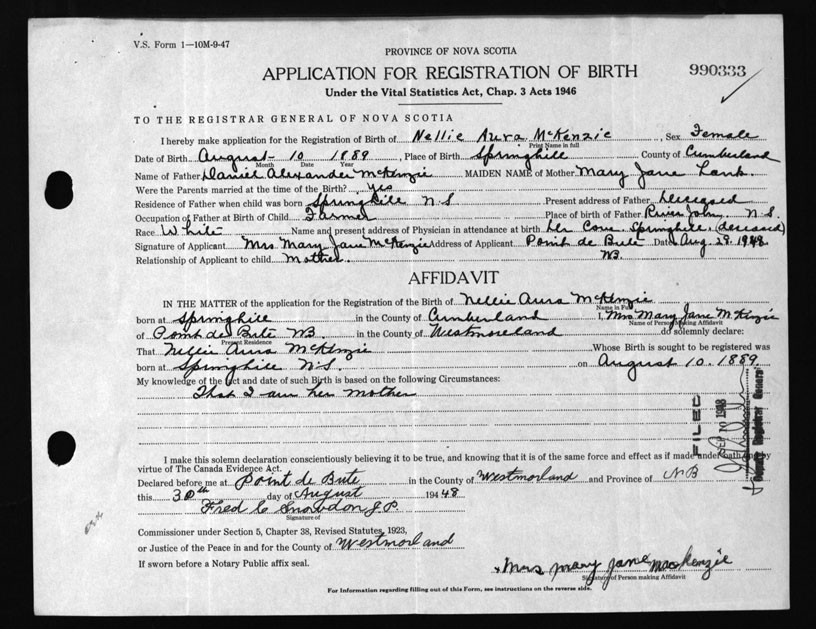 V.S. Form 1—10M-9-47
PROVINCE OF NOVA SCOTIA
APPLICATION FOR REGISTRATION OF BIRTH
990333
Under the Vital Statistics Act, Chap. 3 Acts 1946
TO THE REGISTRAR GENERAL OF NOVA SCOTIA
I hereby make application for the Registration of Birth of Nellie Aura McKenzie, Sex Female
Print Name in full
Date of Birth August 10 1889, Place of Birth Springhill County of Cumberland
Month Date Year
Name of Father Daniel Alexander McKenzie MAIDEN NAME of Mother Mary Jane
Were the Parents married at the time of the Birth? yes
Residence of Father when child was born Springhill N.S Present address of Father Deceased
Occupation of Father at Birth of Child Farmer Place of birth of Father River John, N.S.
Race White Name and present address of Physician in attendance at birth Springhill, (deceased)
Signature of Applicant Mrs Mary Jane McKenzie Address of Applicant Point de Bute Date Aug. 29. 1948
Relationship of Applicant to child Mother. NB.
AFFIDAVIT
IN THE MATTER of the application for the Registration of the Birth of Nellie Aura McKenzie
Name in Full
born at Springhill in the County of Cumberland I, Mrs Mary Jane McKenzie
Name of Person Making Affidavit
of Point de Bute NB. in the County of Westmoreland do solemnly declare:
Present Residence
That Nellie Aura McKenzie Whose Birth is sought to be registered was
born at Springhill N.S. on August 10. 1889
My knowledge of the fact and date of such Birth is based on the following Circumstances:
That I am her mother
FILED
SEP 10 1948
Deputy Registrar General
I make this solemn declaration conscientiously believing it to be true, and knowing that it is of the same force and effect as if made under oath by
virtue of The Canada Evidence Act.
Declared before me at Point de Bute in the County of Westmorland and Province of NB
this 30th day of August 194 48
Fred C Snowdon J.P.
Signature of
Commissioner under Section 5, Chapter 38, Revised Statutes, 1923,
or Justice of the Peace in and for the County of Westmorland
If sworn before a Notary Public affix seal.
Mrs Mary Jane MacKenzie
Signature of Person making Affidavit
For Information regarding filling out of this Form, see instructions on the reverse side.